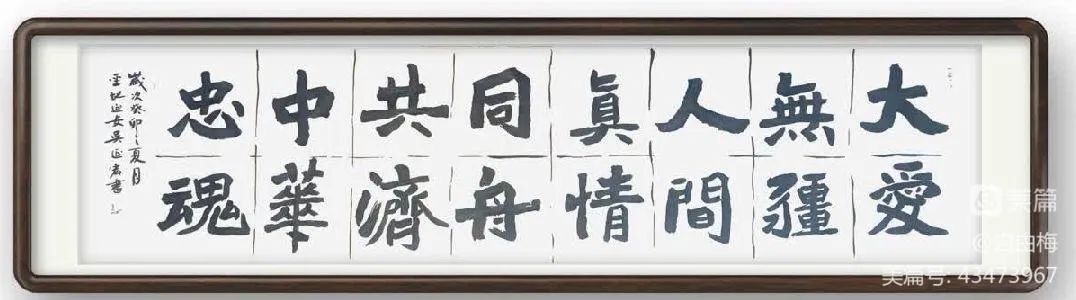 大愛
無疆
人間
真情
同舟
共濟
中華
忠魂
歲次癸卯之夏月
美篇
@自由梅
美篇号: 43473967